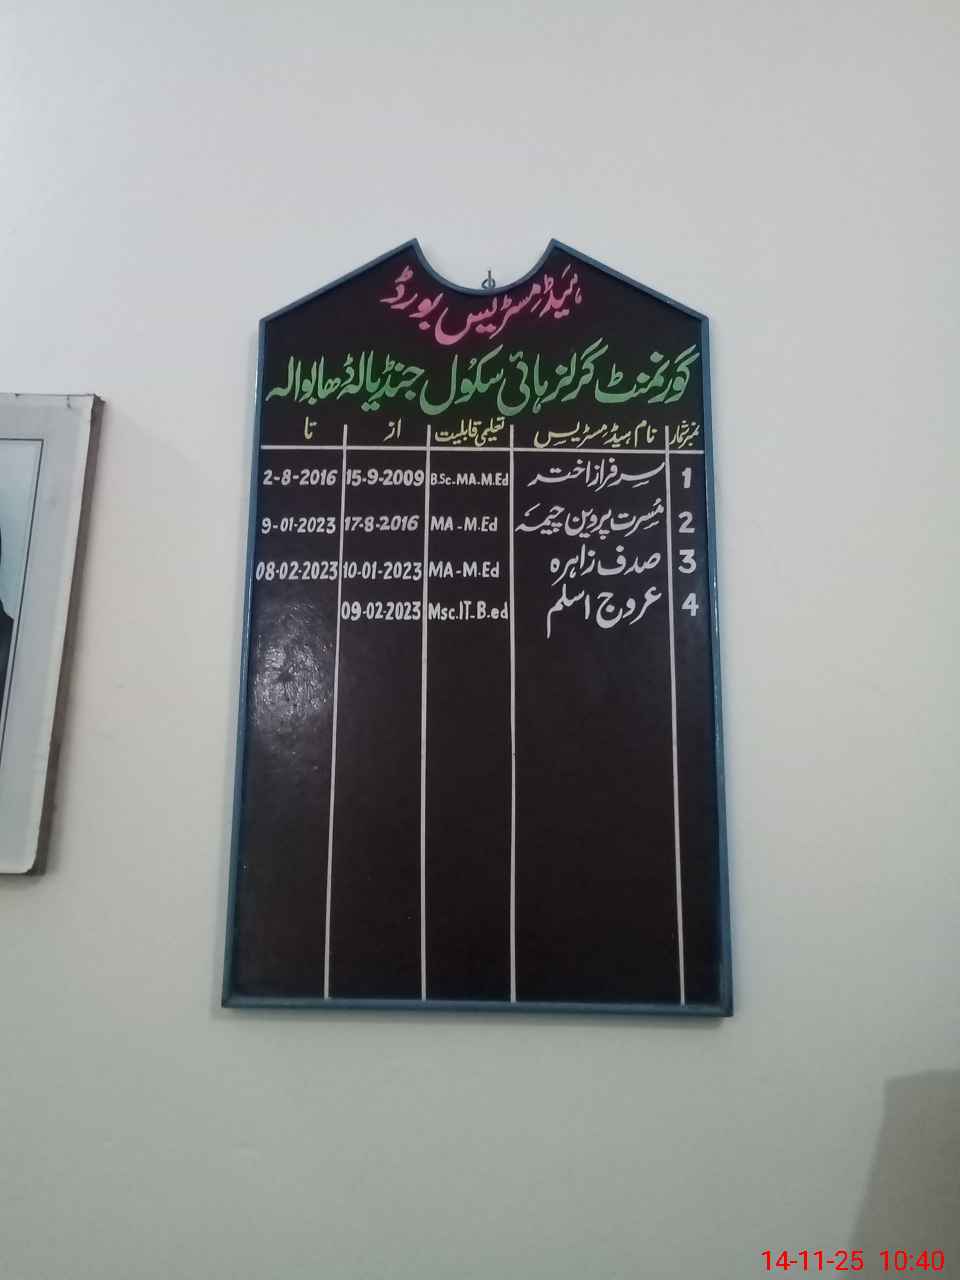 ہیڈ مسٹریس بورڈ
گورنمنٹ گرلز ہائی سکول جنڈیالہ ڈھابوالہ
نمبر شمار نام ہیڈ مسٹریس تعلیمی قابلیت از تا
1 سرفراز اختر B.Sc.MA.M.Ed 15-9-2009 2-8-2016
2 مسرت پروین چیمہ MA-M.Ed 17-8-2016 9-01-2023
3 صدف زاہرہ MA-M.Ed 10-01-2023 08-02-2023
4 عروج اسلم Msc.IT-B.ed 09-02-2023
14-11-25 10:40